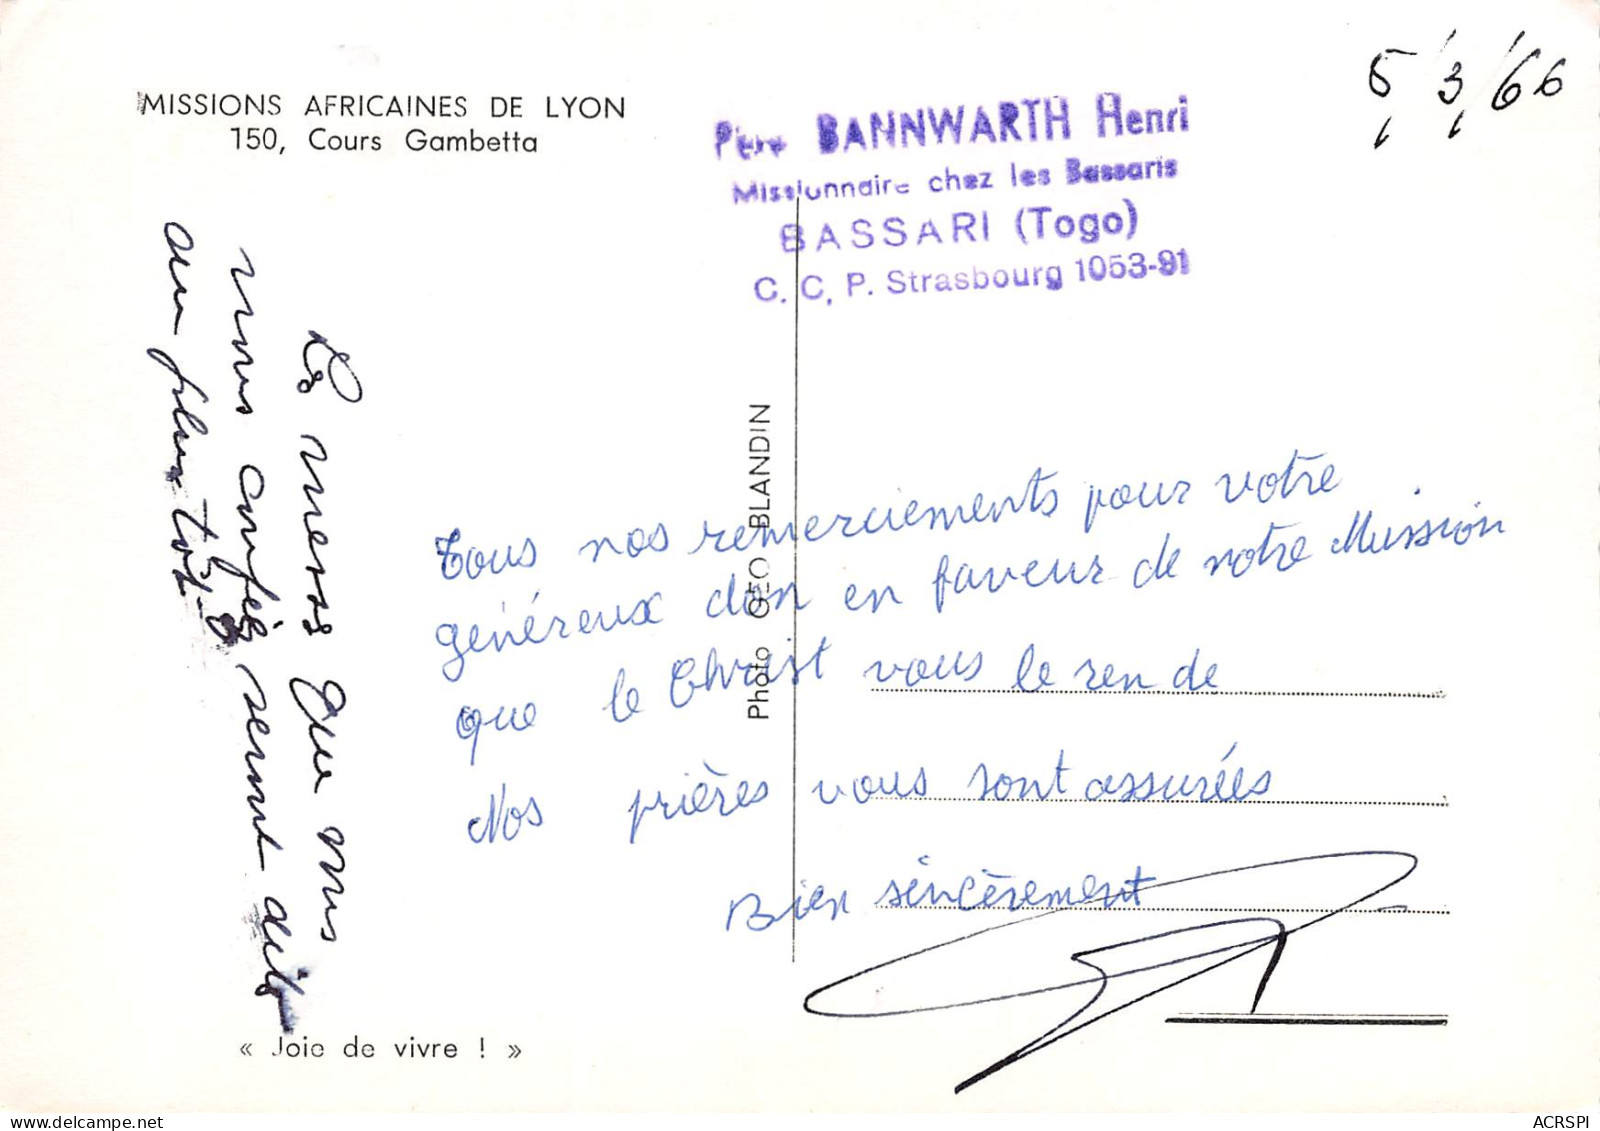 MISSIONS AFRICAINES DE LYON
150, Cours Gambetta
Père BANNWARTH Henri
Missionnaire chez les Bassaris
BASSARI (Togo)
C. C. P. Strasbourg 1053-91
5/3/66
Photo GEO BLANDIN
Tous nos remerciements pour votre
généreux don en faveur de notre Mission
que le Christ vous le ren de
Nos prières vous sont assurées
Bien sincèrement
Les messes que vous
nous confiés seront dites
au plus tôt.
« Joie de vivre ! »
ACRSPI